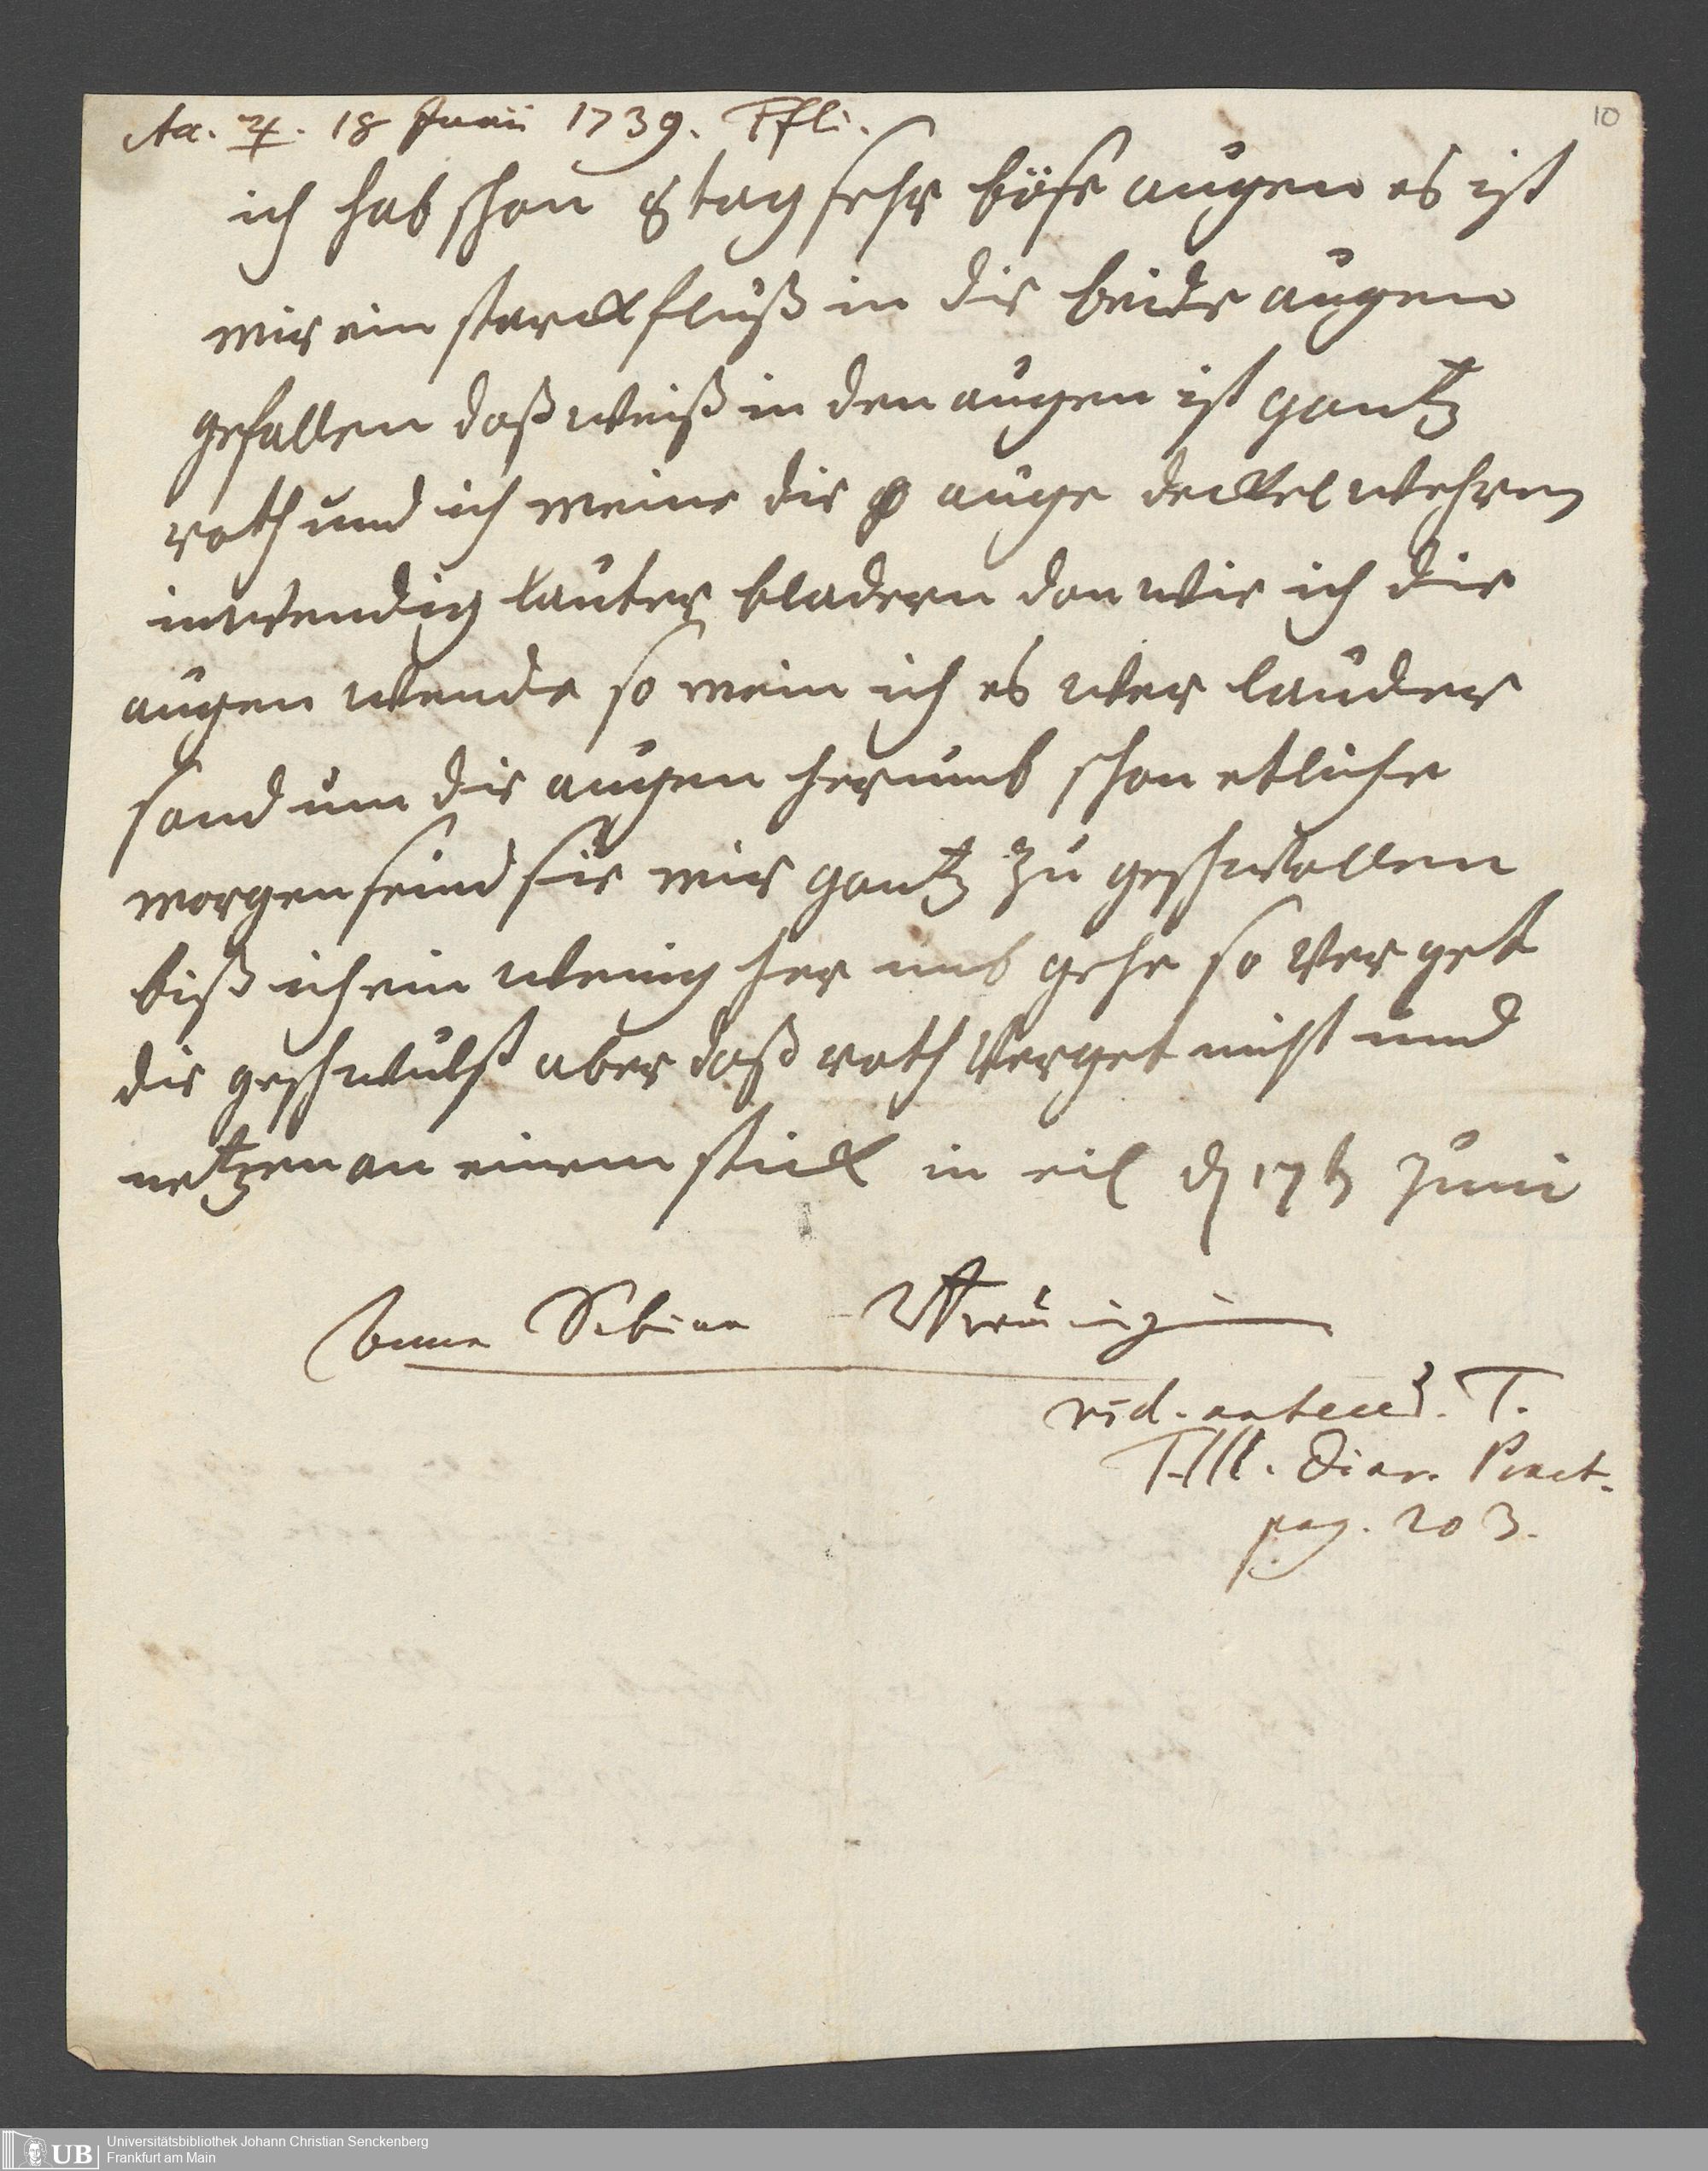 10
Aa. ♃. 18 Junii 1739. Ffti.
ich hab schon 8 tag sehr böse augen es ist
mir ein starck fluß in die beide augen
gefallen daß weiß in den augen ist gantz
roth und ich meine die auge deckel wehren
inwendig lauter bladern dan wie ich die
augen wende so mein ich es wer lauder
sand um die augen herumb schon etliche
morgen seind sie mir gantz zu geschwollen
biß ich ein wenig her umb gehe so verget
die geschwulst aber daß roth verget nicht und
netzen an einem stick in eil d 17t Juni
Anna Sibina
vid. anteced. T.
Diar. Pract.
pag. 203.
UB Universitätsbibliothek Johann Christian Senckenberg
Frankfurt am Main